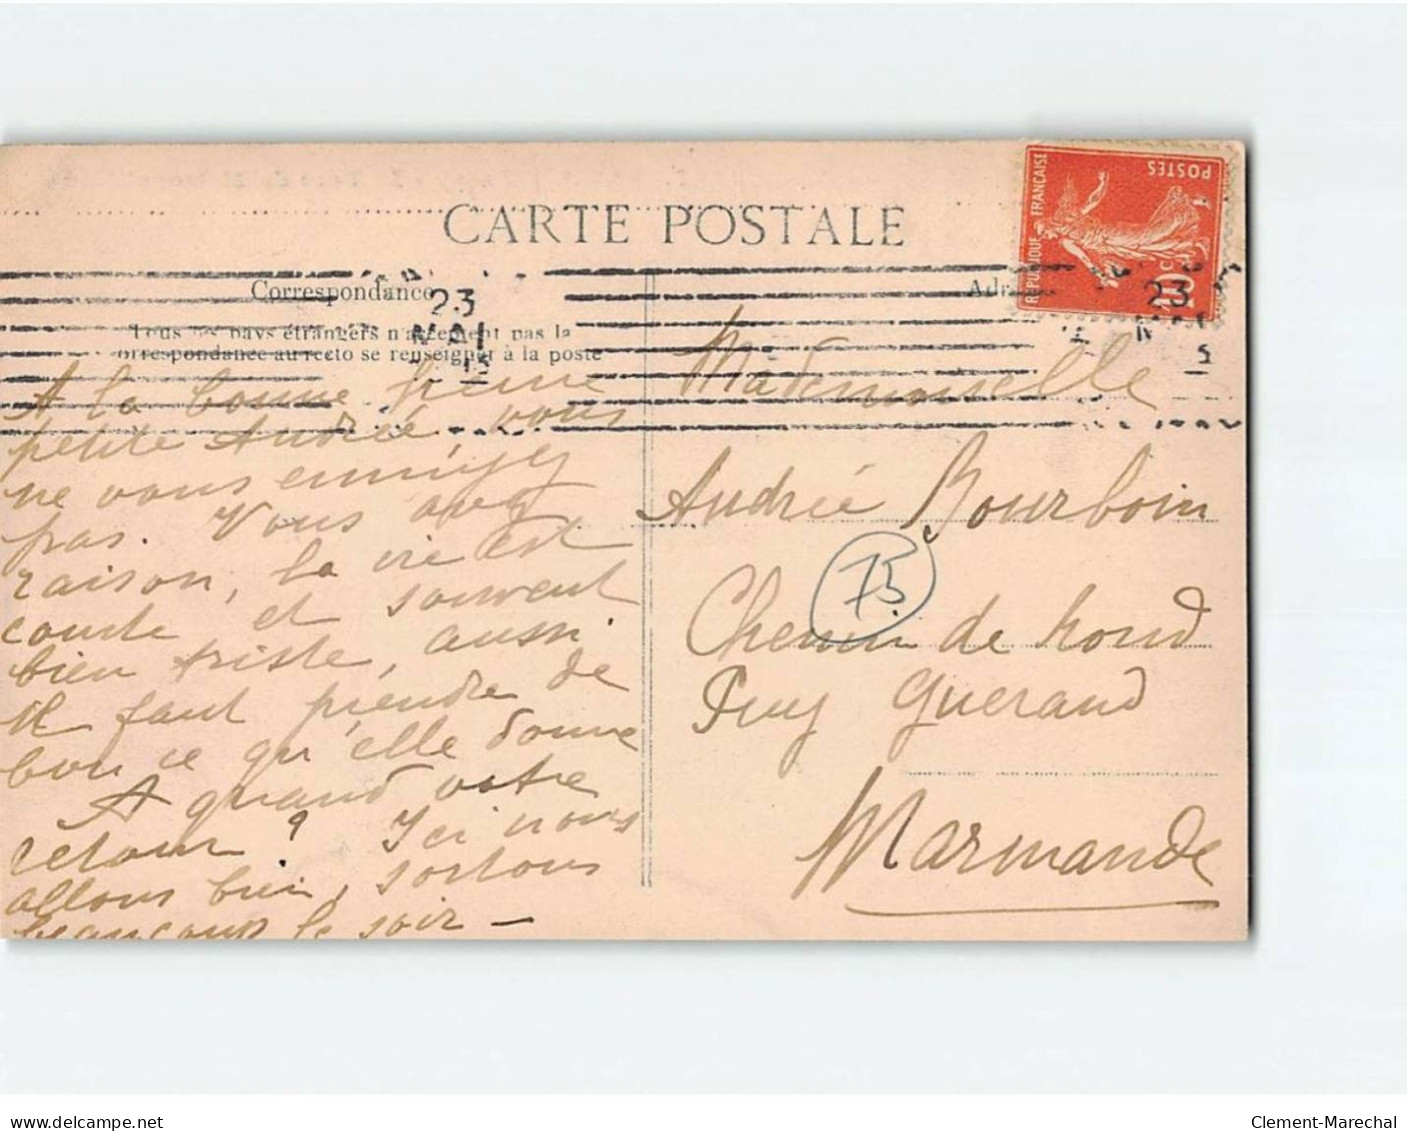 CARTE POSTALE
RÉPUBLIQUE FRANÇAISE
POSTES
10c
Correspondance
Tous les pays étrangers n'acceptent pas la
correspondance au recto se renseigner à la poste
23
MAI
23
A la bonne heure
petite Andrée vous
ne vous ennuyez
pas. Vous avez
raison, la vie est
courte et souvent
bien triste, aussi
il faut prendre de
bon ce qu'elle donne
A quand votre
retour ? Ici nous
allons bien, sortons
beaucoup le soir -
Mademoiselle
Andrée Bourboin
75
Chemin de rond
Puy Guéraud
Marmande
delcampe.net
Clement-Marechal